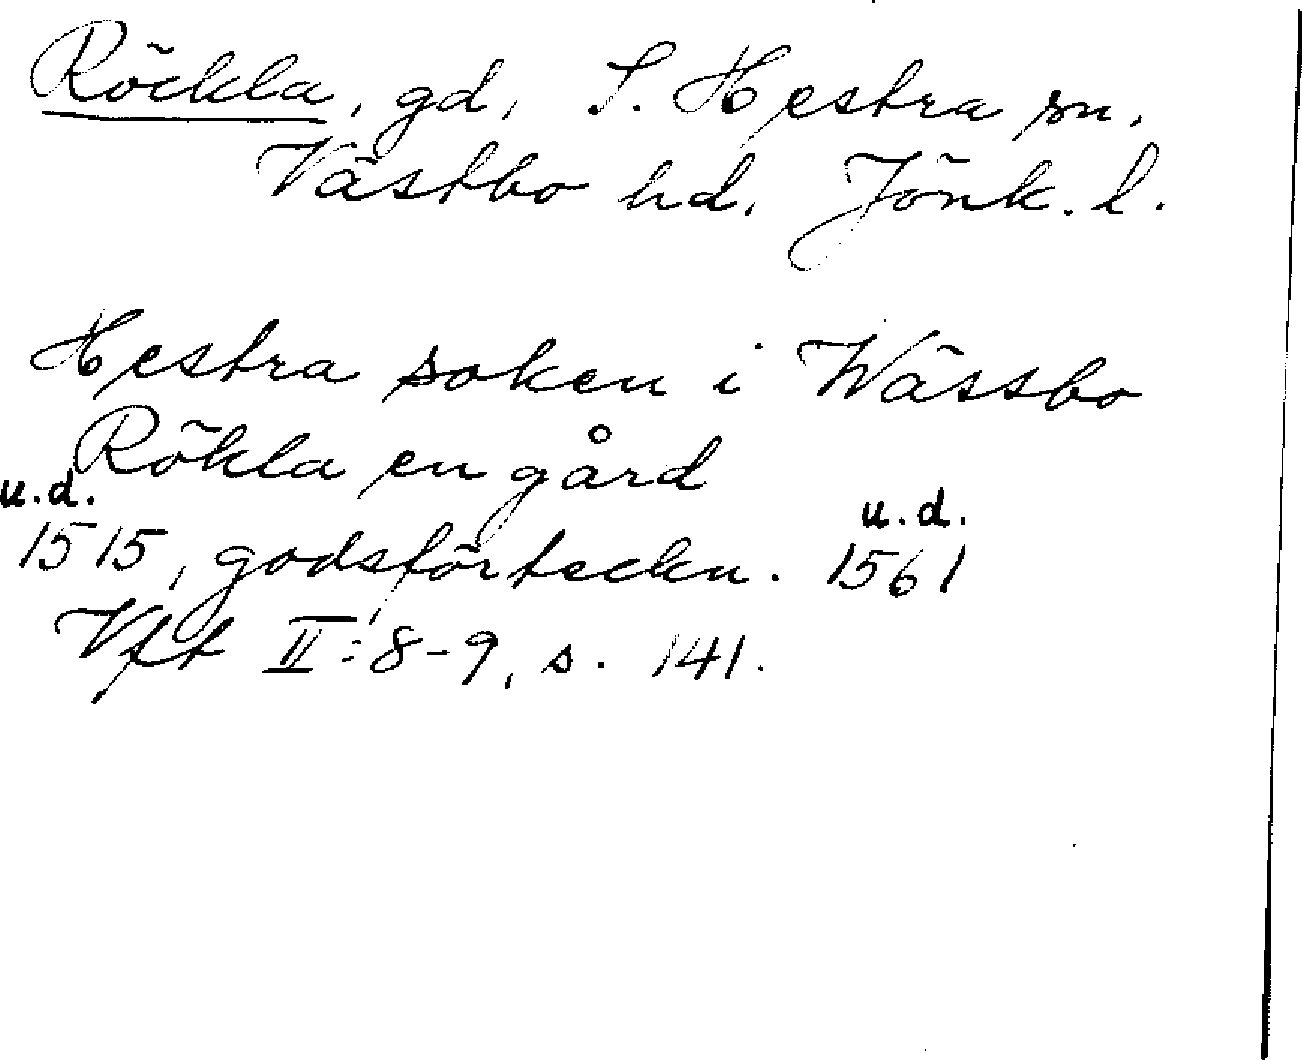 Röckla, gd, S. Hestra sn,
Västbo hd, Jönk. l.
Hestra soken i Wässbo
Rökla en gård
u.d. u.d.
1515, godsförteckn. 1561
Vft II:8-9, s. 141.